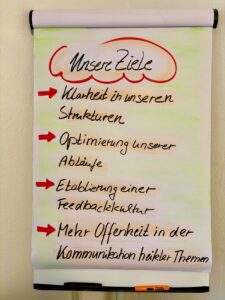 Unsere Ziele
Klarheit in unseren
Strukturen
Optimierung unserer
Abläufe
Etablierung einer
Feedbackkultur
Mehr Offenheit in der
Kommunikation heikler Themen